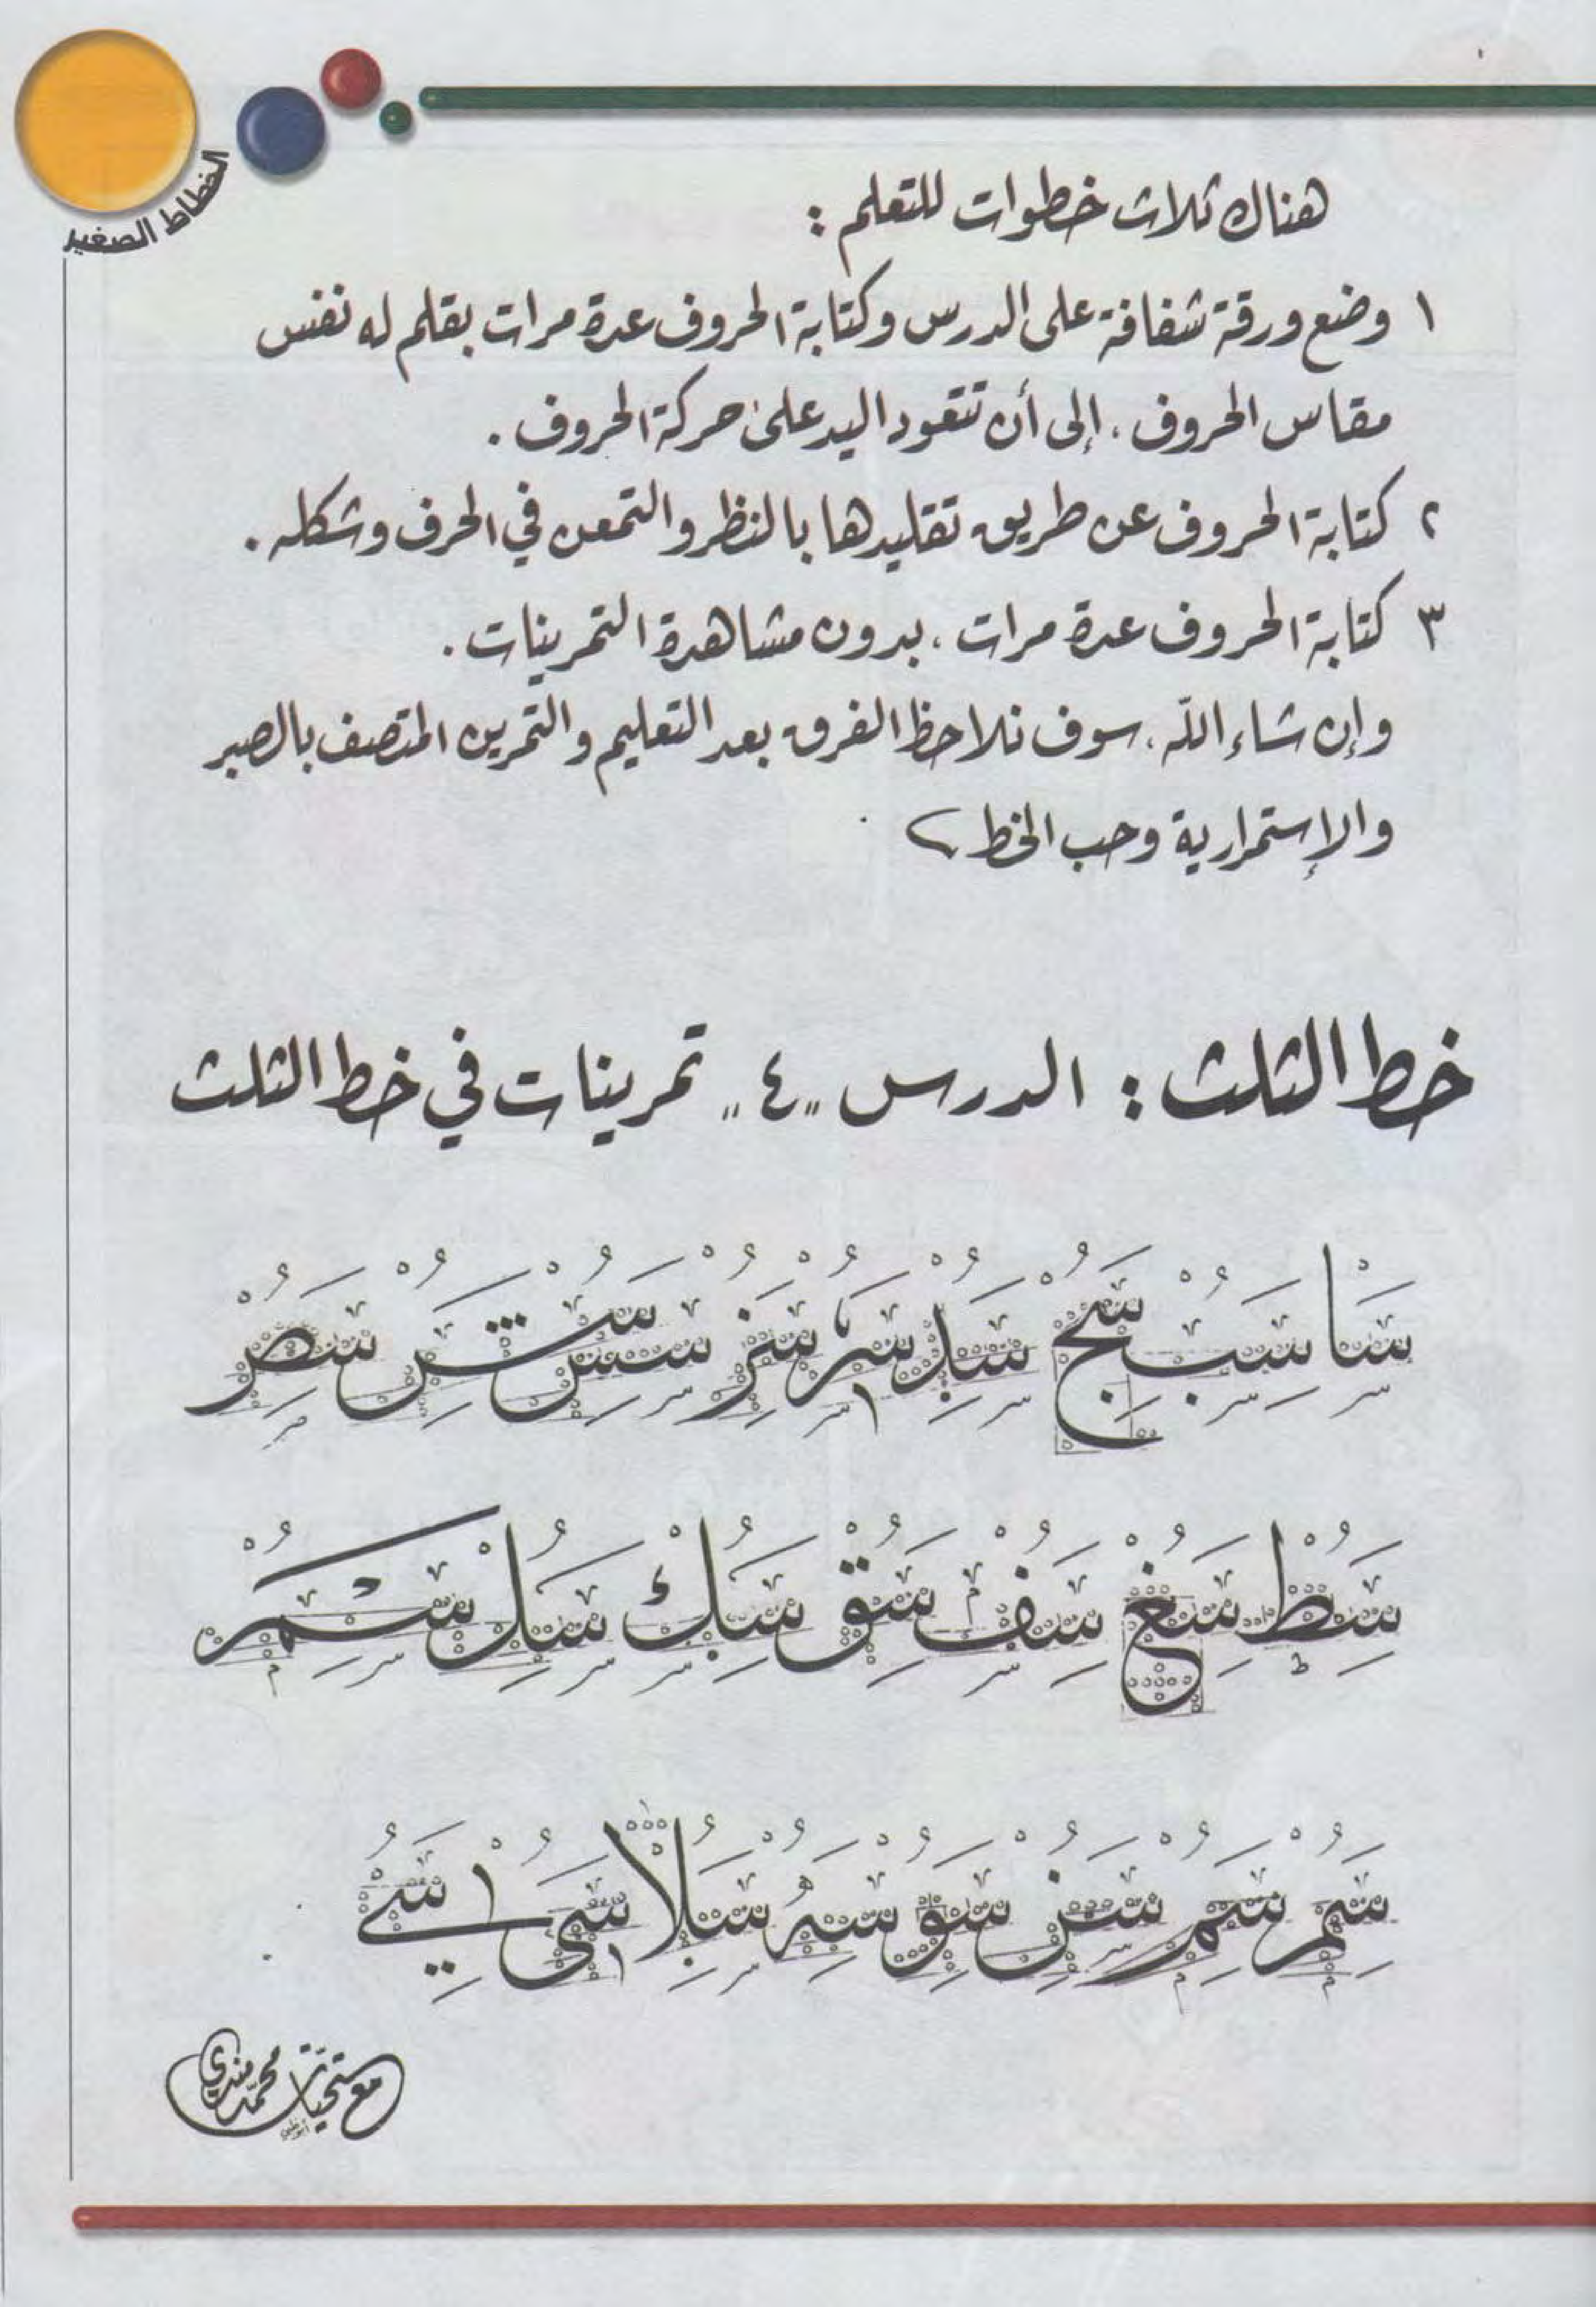 الخطاط الصغير
هناك ثلاث خطوات للتعلم :
١ وضع ورقة شفافة على الدرس وكتابة الحروف عدة مرات بقلم له نفس
مقاس الحروف ، إلى أن تتعود اليد على حركة الحروف .
٢ كتابة الحروف عن طريق تقليدها بالنظر والتمعن في الحرف وشكله .
٣ كتابة الحروف عدة مرات ، بدون مشاهدة التمرينات .
وإن شاء الله ، سوف نلاحظ الفرق بعد التعليم والتمرين المتصف بالصبر
والإستمرارية وحب الخط
خط الثلث : الدرس "٤" تمرينات في خط الثلث
سا سب سج سد سر سز سس سش سص
سط سغ سف سق سك سل سم
سم سم سن سو سه سلا سى سي
مع تحيات محمد مندي